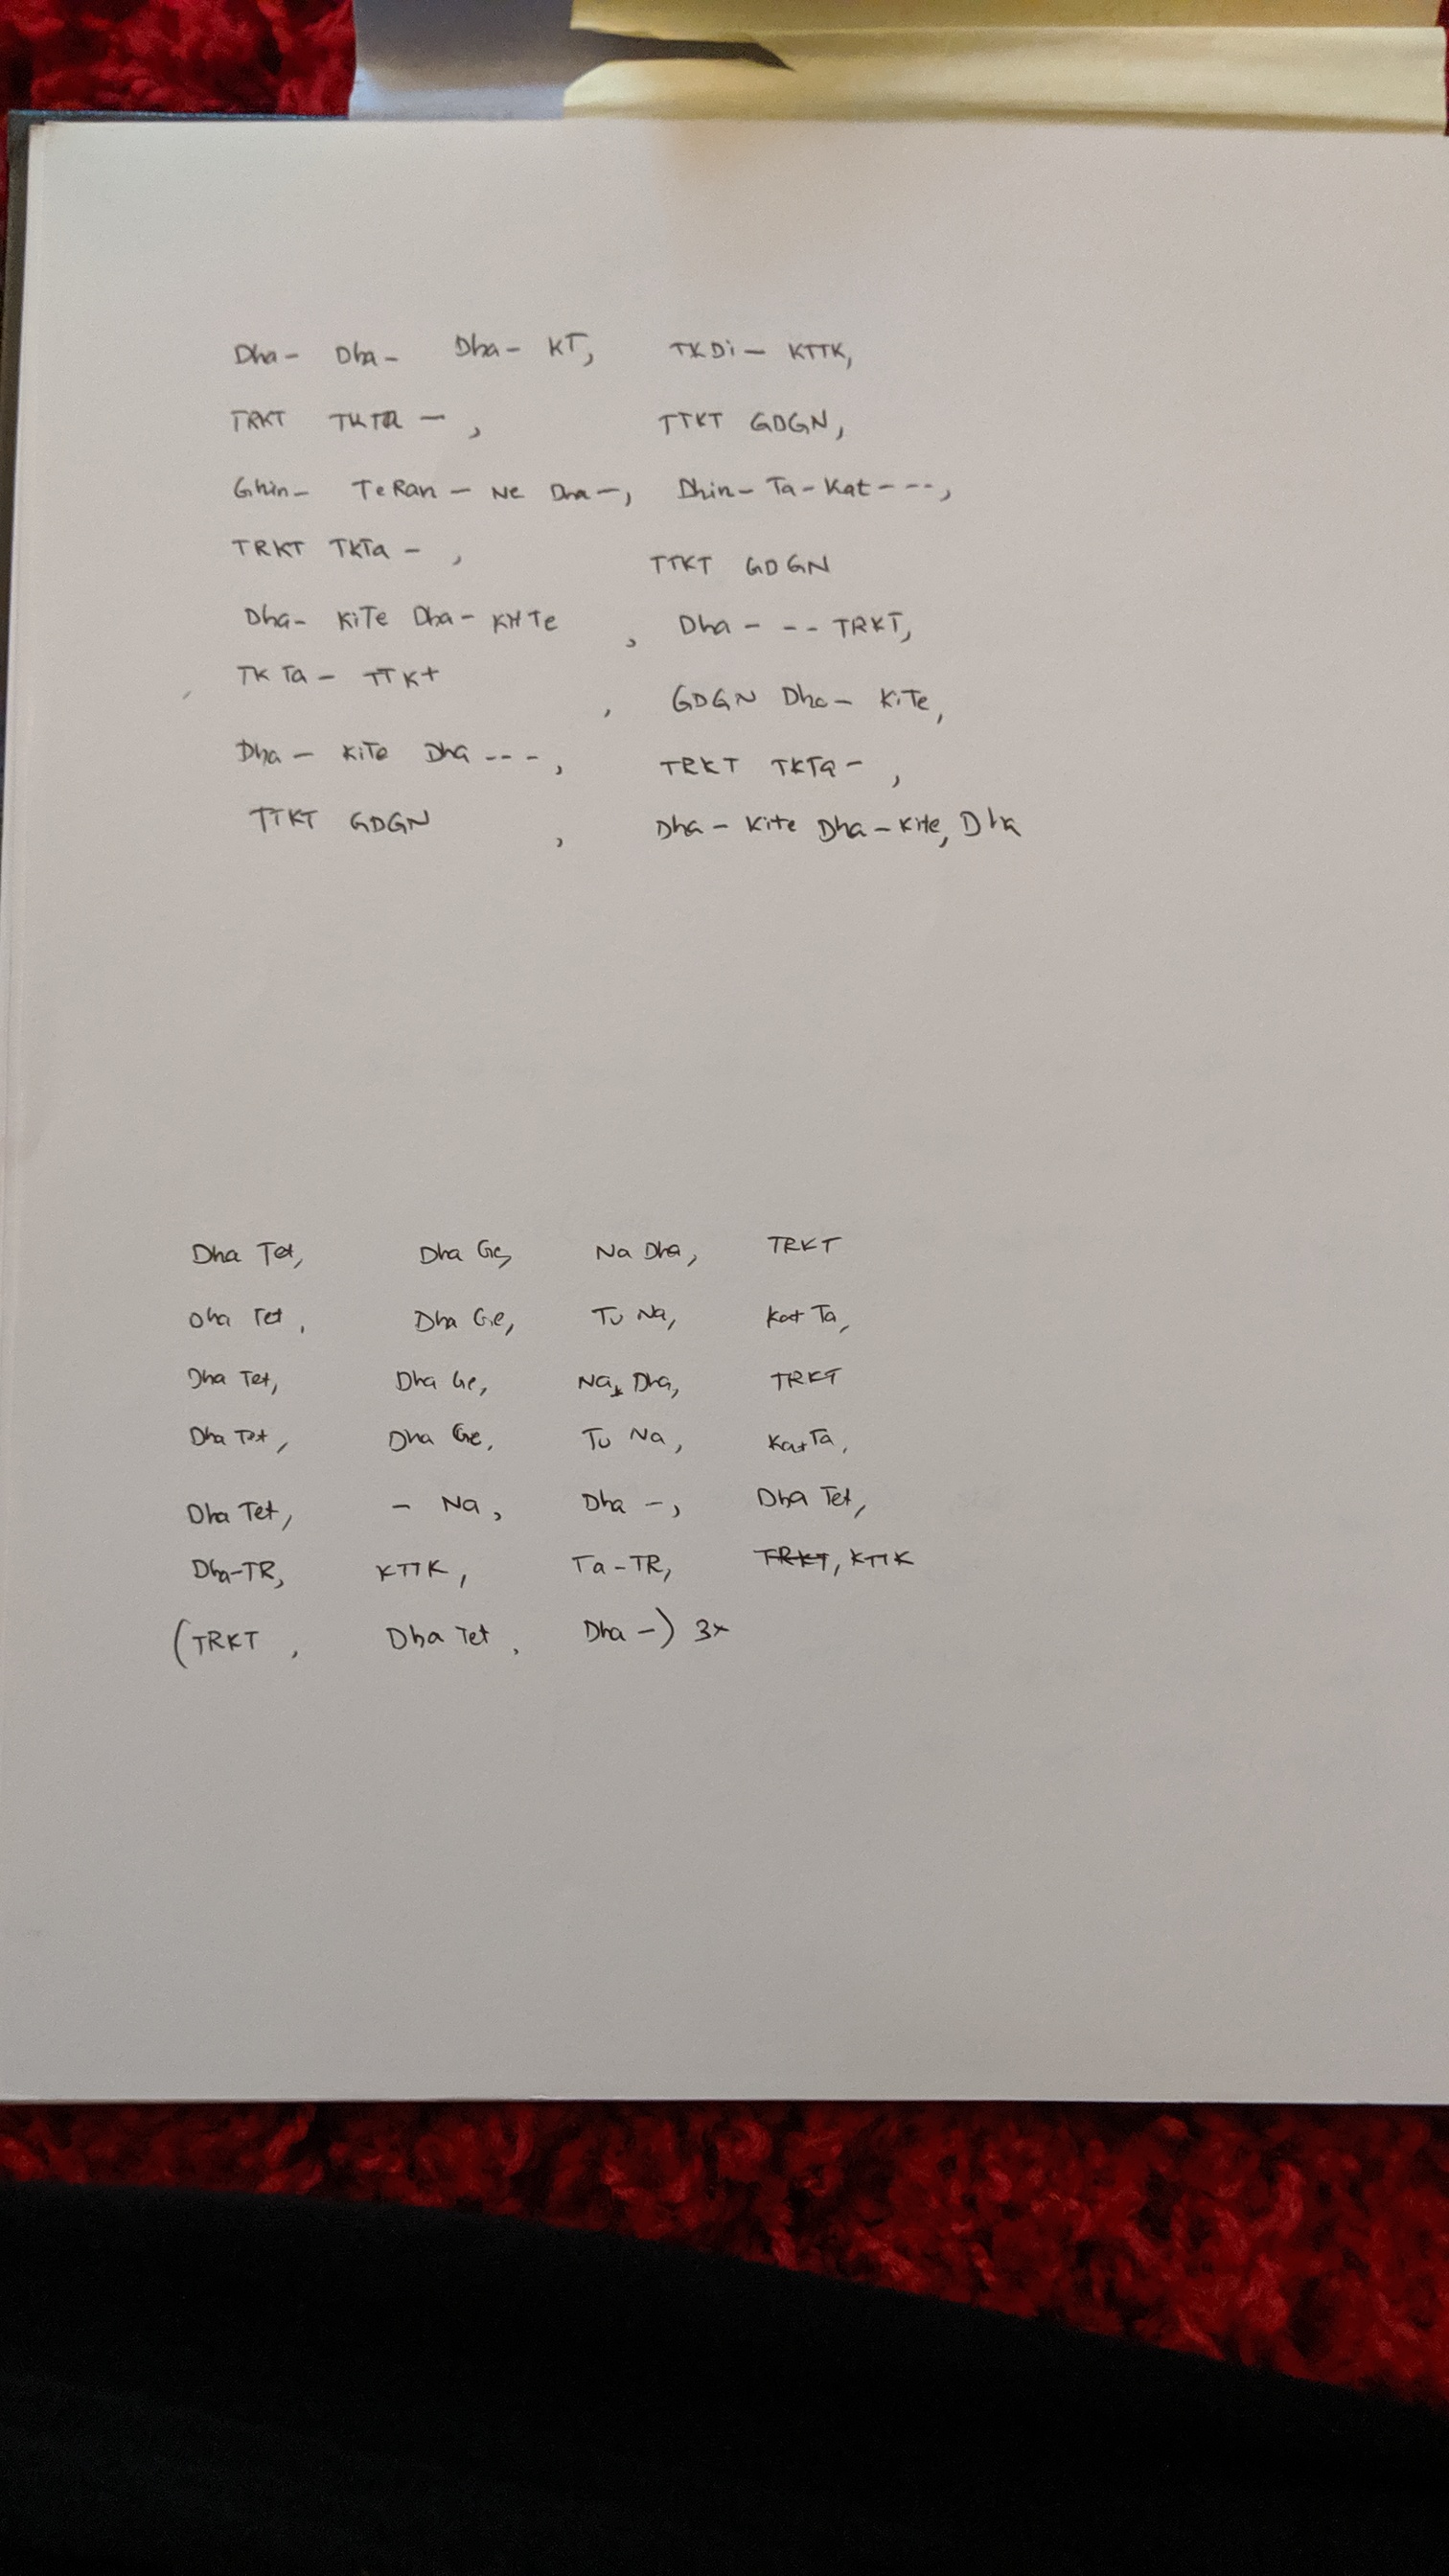 Dha- Dha- Dha- KT, TKDi- KTTK,
TRKT TKTa -, TTKT GDGN,
Ghin- TeRan- Ne Dha-, Dhin- Ta-Kat---,
TRKT TKTa -, TTKT GDGN
Dha- KiTe Dha- KiTe, Dha - -- TRKT,
TKTa- TTKt, GDGN Dha- KiTe,
Dha- KiTe Dha ---, TRKT TKTa-,
TTKT GDGN, Dha- Kite Dha-Kite, Dha
Dha Tet, Dha Ge, Na Dha, TRKT
Dha Tet, Dha Ge, Tu Na, Kat Ta,
Dha Tet, Dha Ge, Na, Dha, TRKT
Dha Tet, Dha Ge, Tu Na, Kat Ta,
Dha Tet, - Na, Dha -, Dha Tet,
Dha-TR, KTTK, Ta-TR, TRKT, KTTK
(TRKT, Dha Tet, Dha -) 3x